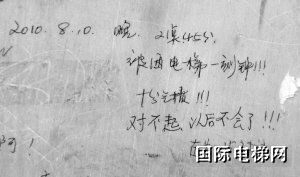 2010.8.10. 晚. 2点45分.
被困电梯一刻钟!!!
十分气愤!!!
对不起 以后不会了!!!
阿!
国际电梯网